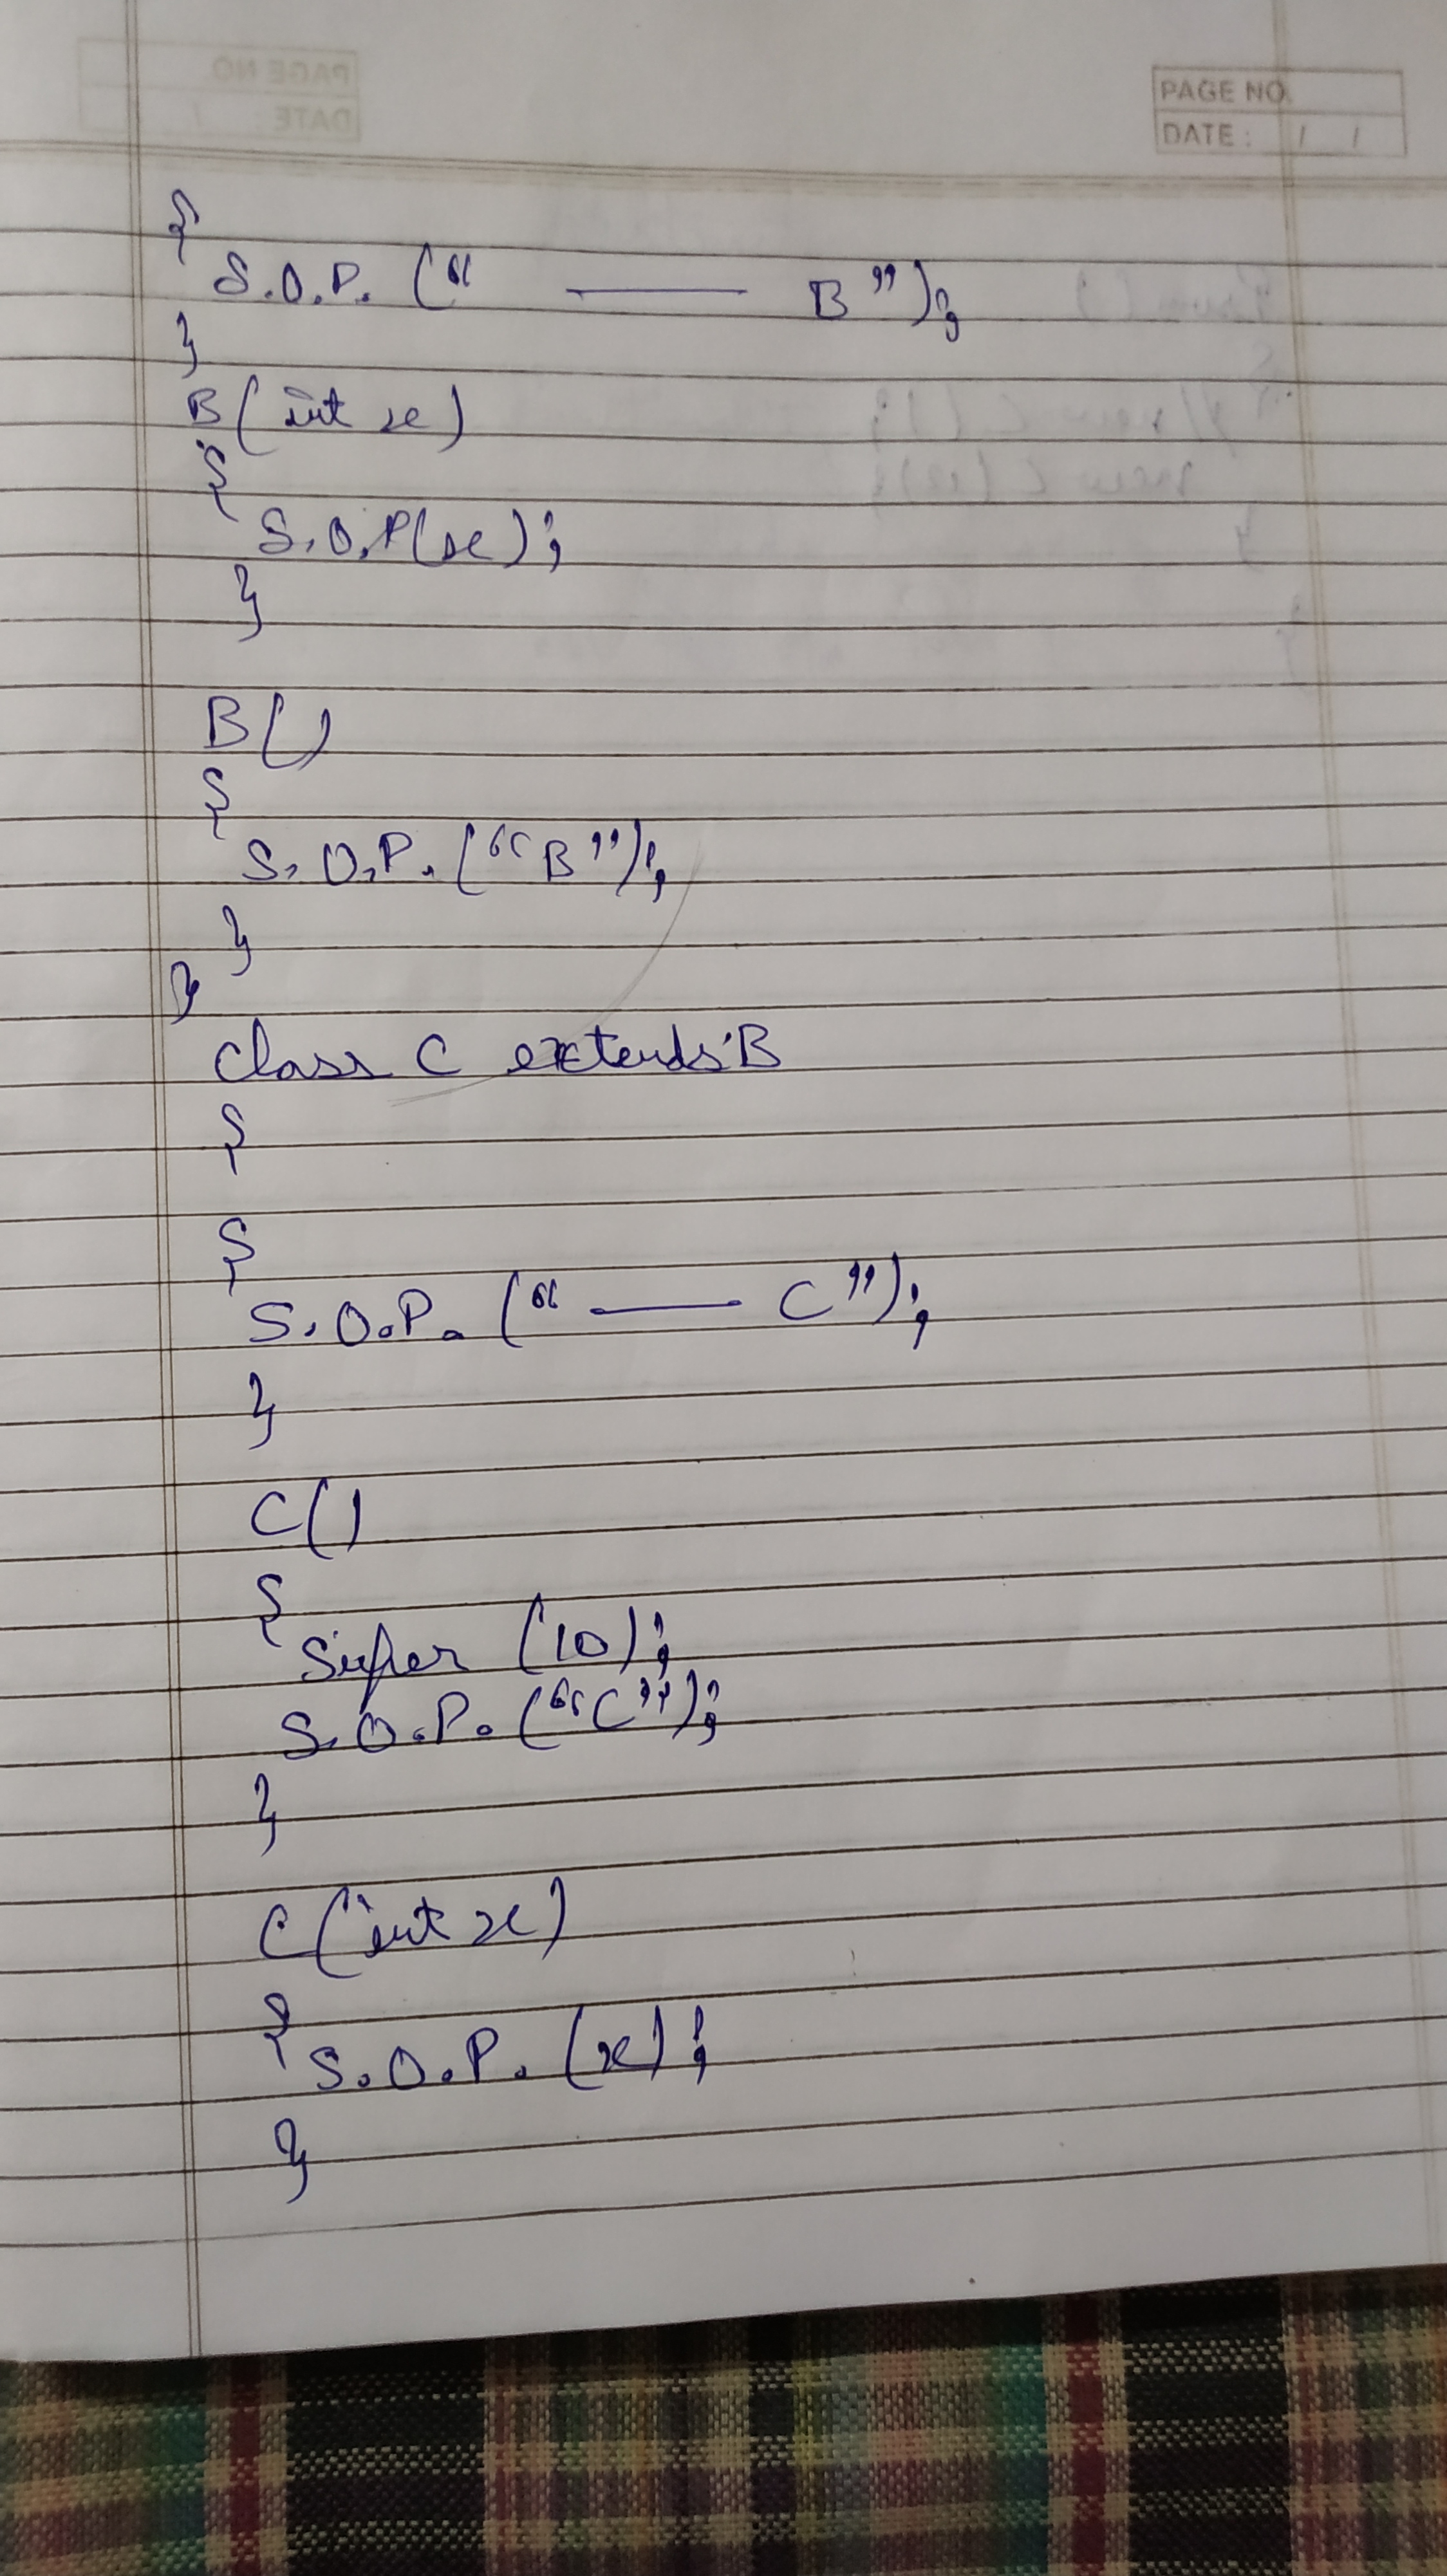 PAGE NO.
DATE : / /
{
S.O.P. (“ —— B”);
}
B(int x)
{
S.O.P(x);
}
B()
{
S.O.P. (“B”);
}
}
class C extends B
{
{
S.O.P. (“ —— C”);
}
C()
{
Super (10);
S.O.P. (“C”);
}
C(int x)
{
S.O.P. (x);
}